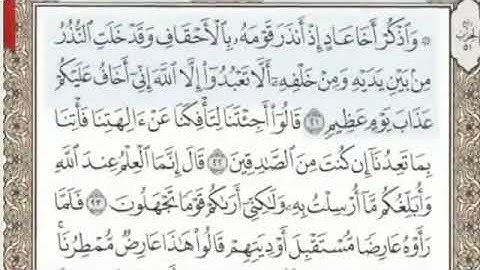 ۞ وَٱذْكُرْ أَخَا عَادٍ إِذْ أَنذَرَ قَوْمَهُۥ بِٱلْأَحْقَافِ وَقَدْ خَلَتِ ٱلنُّذُرُ
مِنۢ بَيْنِ يَدَيْهِ وَمِنْ خَلْفِهِۦٓ أَلَّا تَعْبُدُوٓا۟ إِلَّا ٱللَّهَ إِنِّىٓ أَخَافُ عَلَيْكُمْ
عَذَابَ يَوْمٍ عَظِيمٍ ٢١ قَالُوٓا۟ أَجِئْتَنَا لِتَأْفِكَنَا عَنْ ءَالِهَتِنَا فَأْتِنَا
بِمَا تَعِدُنَآ إِن كُنتَ مِنَ ٱلصَّٰدِقِينَ ٢٢ قَالَ إِنَّمَا ٱلْعِلْمُ عِندَ ٱللَّهِ
وَأُبَلِّغُكُم مَّآ أُرْسِلْتُ بِهِۦ وَلَٰكِنِّىٓ أَرَىٰكُمْ قَوْمًا تَجْهَلُونَ ٢٣ فَلَمَّا
رَأَوْهُ عَارِضًا مُّسْتَقْبِلَ أَوْدِيَتِهِمْ قَالُوا۟ هَٰذَا عَارِضٌ مُّمْطِرُنَا ۚ
ربع
الحزب
٥١